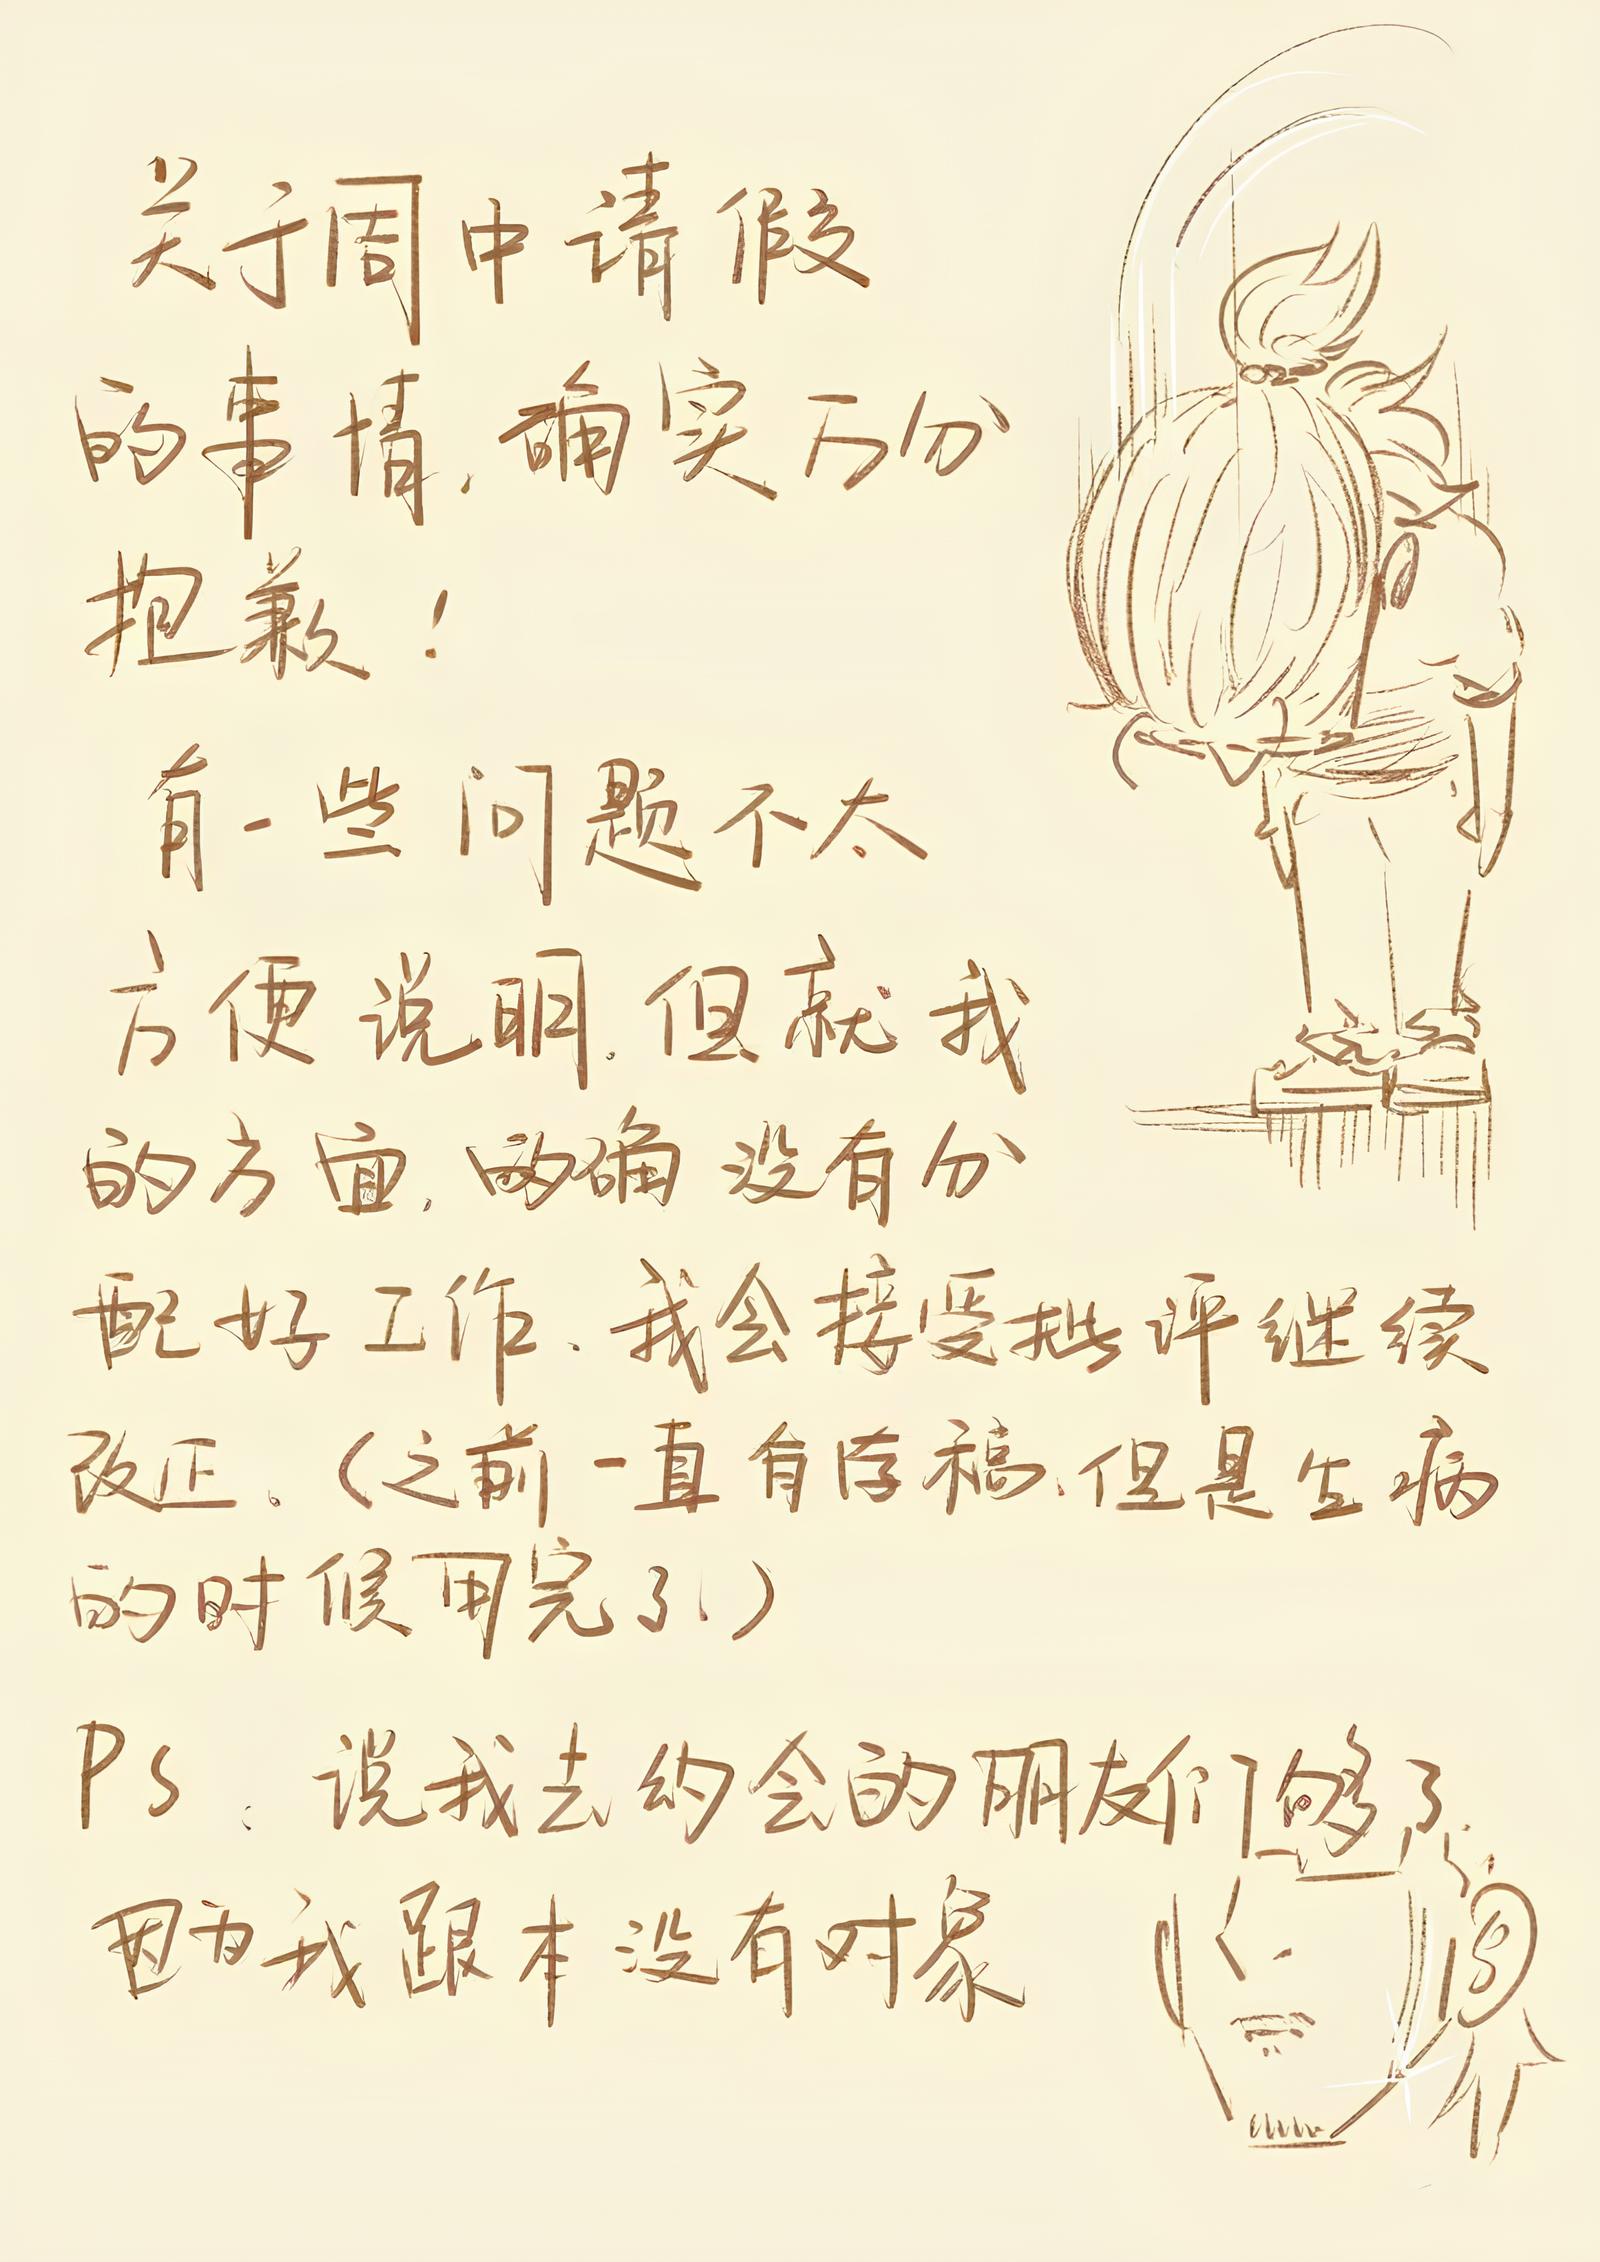 关于周中请假
的事情,确实万分
抱歉!
有一些问题不太
方便说明.但就我
的方面,的确没有分
配好工作、我会接受批评继续
改正。(之前一直有存稿、但是生病
的时候用完了!)
PS：说我去约会的朋友们够了
因为我跟本没有对象